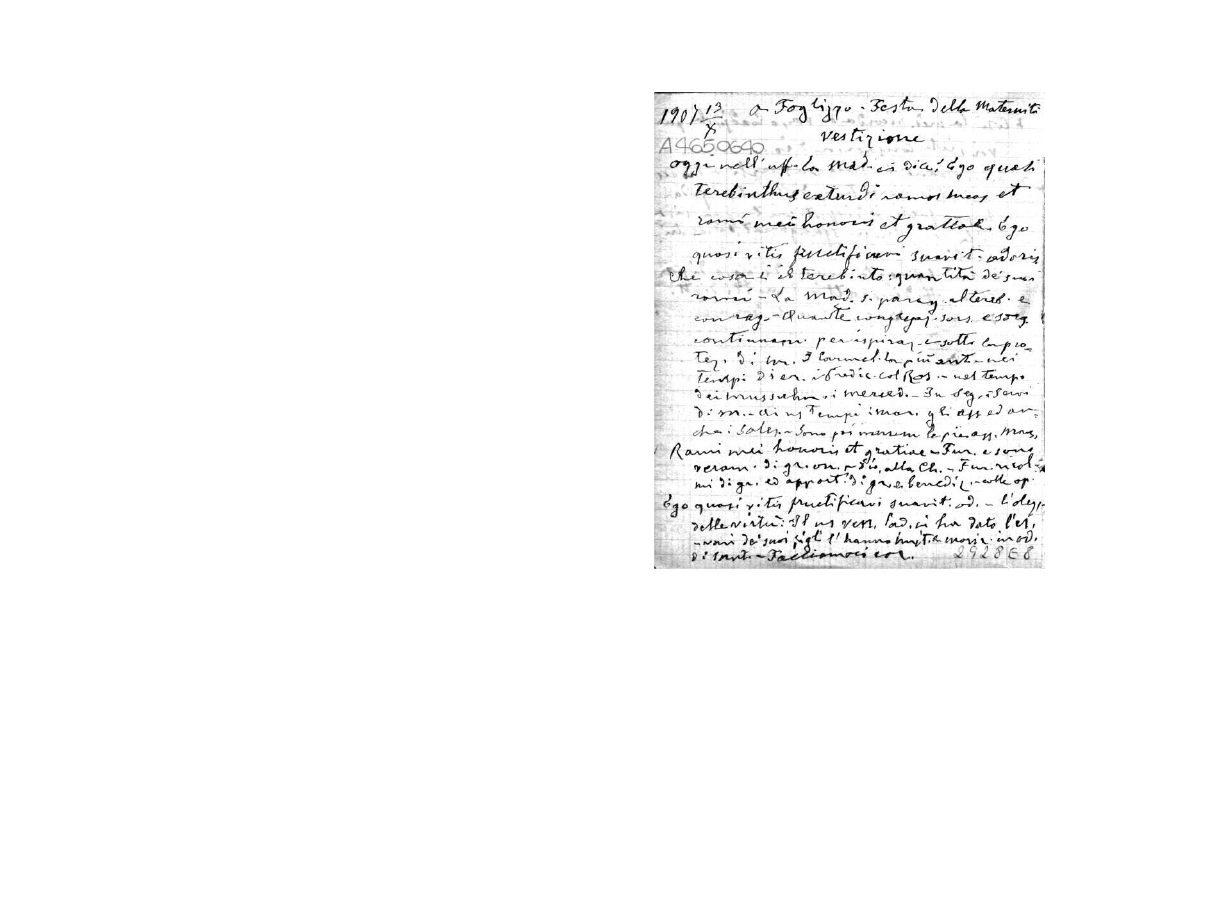 1907 13/X a Foglizzo - Festa della Maternità
Vestizione
A4650640
oggi nell'uff. la Mad. ci dice: Ego quasi
terebinthus extendi ramos meos et
rami mei honoris et gratiae. Ego
quasi vitis fructificavi suavit. odoris
Che cosa è il terebinto: quantità de' suoi
rami - La Mad. s. parag. al tereb. e
con rag. - Quante congregaz. sors. e sorg.
continuam. per ispiraz. e sotto la pro-
tez. di M. I Carmel. la più ant. - nei
tempi di er. i Predic. col Ros. - nel tempo
dei mussulm. i Merced. - In seg. i Servi
di M. - Ai ns tempi i Mar. gli ass. ed an-
che i Sales. - Sono poi le pie ass. Mar.
Rami mei honoris et gratiae - Fur. e sono
veram. di gr. on. a Dio, alla Ch. - Fur. ricol-
mi di gr. ed apport. di gr. e benediz. - colle op.
Ego quasi vitis fructificavi suavit. od. - L'olezz.
delle virtù: Il ns ven. Pad. ci ha dato l'es.
- vari de' suoi figli l'hanno imit. e morir. in od.
di sant. - Facciamoci cor.
2928E8